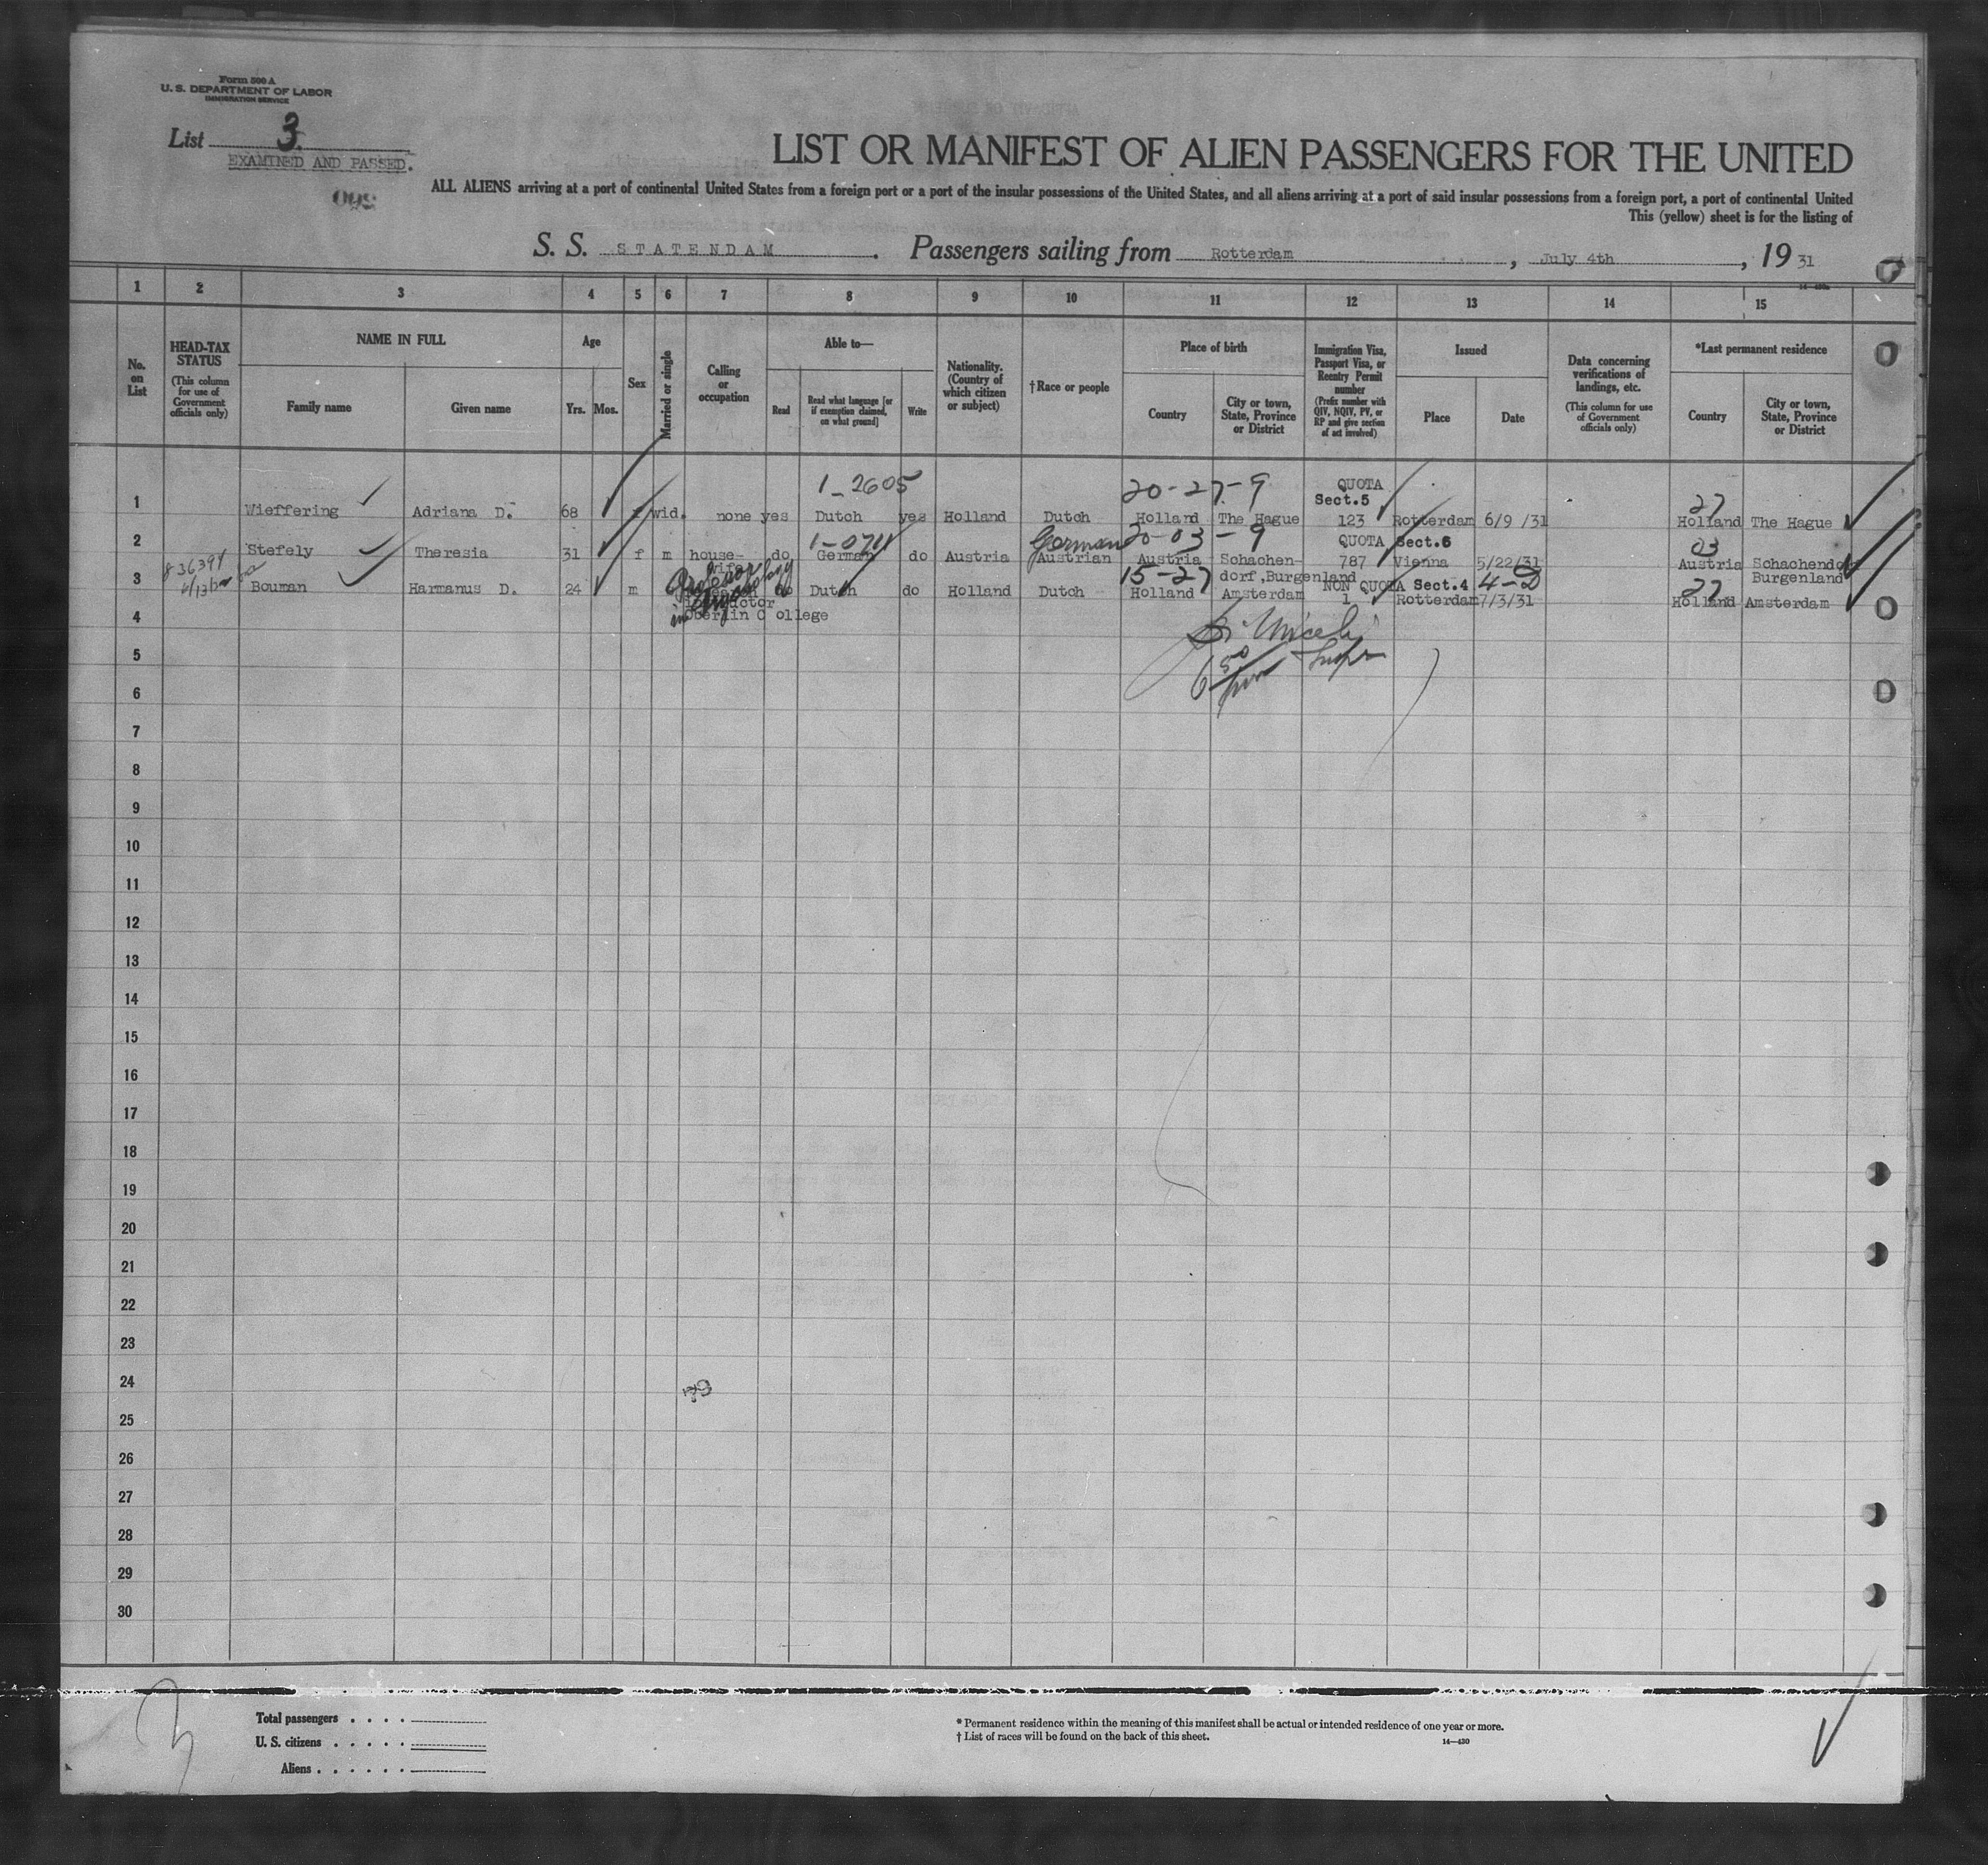 Form 500 A
U. S. DEPARTMENT OF LABOR
IMMIGRATION SERVICE
List 3
EXAMINED AND PASSED.
LIST OR MANIFEST OF ALIEN PASSENGERS FOR THE UNITED
ALL ALIENS arriving at a port of continental United States from a foreign port or a port of the insular possessions of the United States, and all aliens arriving at a port of said insular possessions from a foreign port, a port of continental United
This (yellow) sheet is for the listing of
S. S. STATENDAM. Passengers sailing from Rotterdam, July 4th, 19 31
1 2 3 4 5 6 7 8 9 10 11 12 13 14 15
No. on List
HEAD-TAX STATUS
(This column for use of Government officials only)
NAME IN FULL
Family name
Given name
Age
Yrs. Mos.
Sex
Married or single
Calling or occupation
Able to—
Read
Read what language [or if exemption claimed, on what ground]
Write
Nationality. (Country of which citizen or subject)
†Race or people
Place of birth
Country
City or town, State, Province or District
Immigration Visa, Passport Visa, or Reentry Permit number
(Prefix number with QIV, NQIV, PV, or RP and give section of act involved)
Issued
Place
Date
Data concerning verifications of landings, etc.
(This column for use of Government officials only)
*Last permanent residence
Country
City or town, State, Province or District
1-2605 20-27-9 QUOTA Sect.5 27
1 Wieffering Adriana D. 68 f wid. none yes Dutch yes Holland Dutch Holland The Hague 123 Rotterdam 6/9 /31 Holland The Hague
1-0711 German 20-03-9 QUOTA Sect.6 03
2 Stefely Theresia 31 f m house-wife do German do Austria Austrian Austria Schachen-dorf,Burgenland 787 Vienna 5/22/31 Austria Schachendo Burgenland
836394 Professor 15-27 NON QUOTA Sect.4 4-D 27
3 Bouman Harmanus D. 24 m do Dutch do Holland Dutch Holland Amsterdam 1 Rotterdam 7/3/31 Holland Amsterdam
in Oberlin C ollege
4
5
6
7
8
9
10
11
12
13
14
15
16
17
18
19
20
21
22
23
24
25
26
27
28
29
30
Total passengers
U. S. citizens
Aliens
* Permanent residence within the meaning of this manifest shall be actual or intended residence of one year or more.
† List of races will be found on the back of this sheet.
14—430